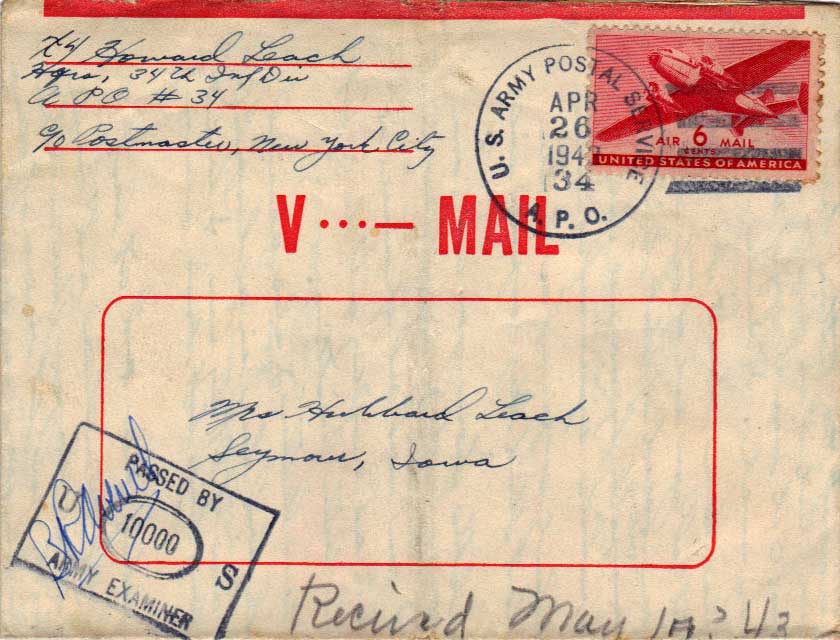 Howard Leach
Hqrs, 34th Inf Div
A P O # 34
c/o Postmaster, New York City
U. S. ARMY POSTAL SERVICE
APR
26
1943
34
A. P. O.
AIR 6 MAIL
CENTS
UNITED STATES OF AMERICA
V ···— MAIL
Mrs Hubbard Leach
Seymour, Iowa
PASSED BY
U 10000 S
ARMY EXAMINER
Recived May 43